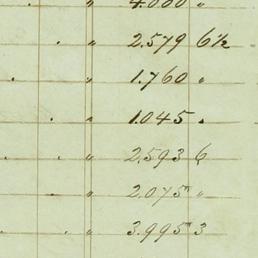 " 4.000 "
" 2.579 6½
" 1.760 "
" 1.045 "
" 2.593 6
" 2.075 "
" 3.995 3